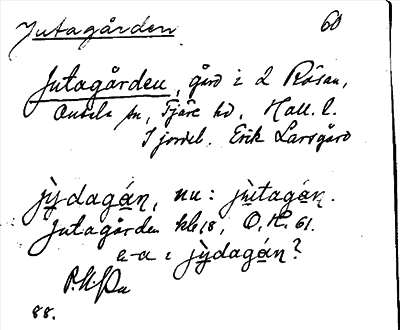 Jutagården 60
Jutagården, gård i L Rösan,
Onsala sn, Fjäre hd, Hall. l.
I jordeb. Erik Larsgård
jỳdagáꞃ, nu: jùtagáꞃ.
Jutagården kb 18, O.H. 61.
a-a: jỳdagáꞃ?
88.